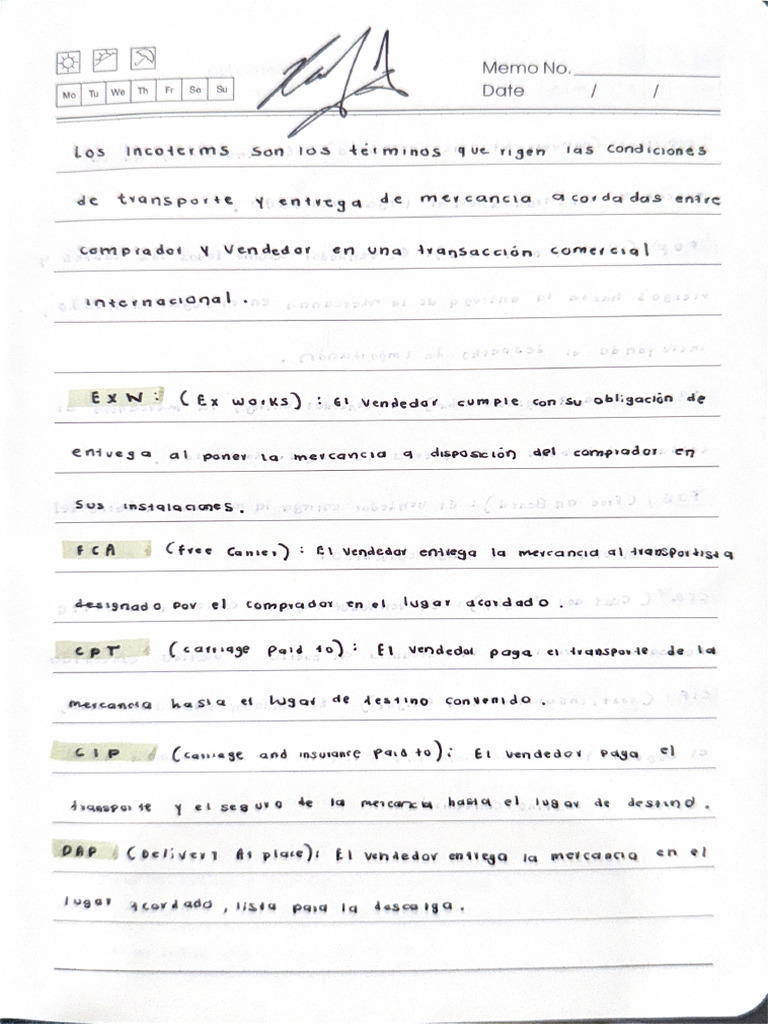 Memo No.
Mo Tu We Th Fr Sa Su
Date / /
Los Incoterms son los términos que rigen las condiciones
de transporte y entrega de mercancia acordadas entre
comprador y vendedor en una transacción comercial
internacional.
EXW: (Ex works): El vendedor cumple con su obligación de
entrega al poner la mercancia a disposición del comprador en
sus instalaciones.
FCA (Free Carrier): El vendedor entrega la mercancia al transportista
designado por el comprador en el lugar acordado.
CPT (carriage paid to): El vendedor paga el transporte de la
mercancia hasta el lugar de destino convenido.
CIP (carriage and insurance paid to): El vendedor paga el
transporte y el seguro de la mercancia hasta el lugar de destino.
DAP (Delivery At place): El vendedor entrega la mercancia en el
lugar acordado, lista para la descarga.